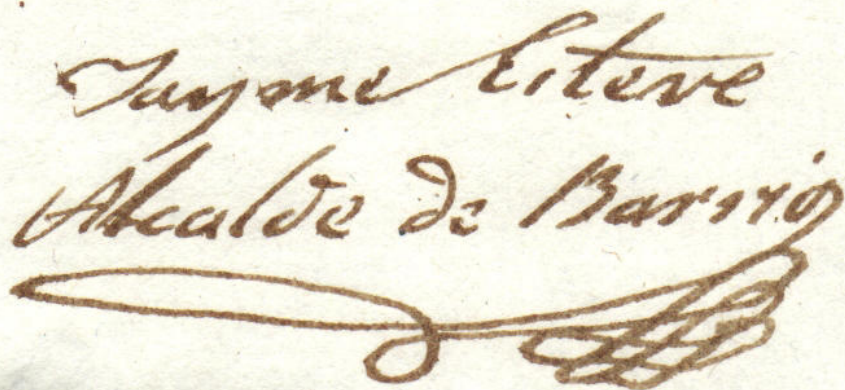 Jayme Esteve
Alcalde de Barrio